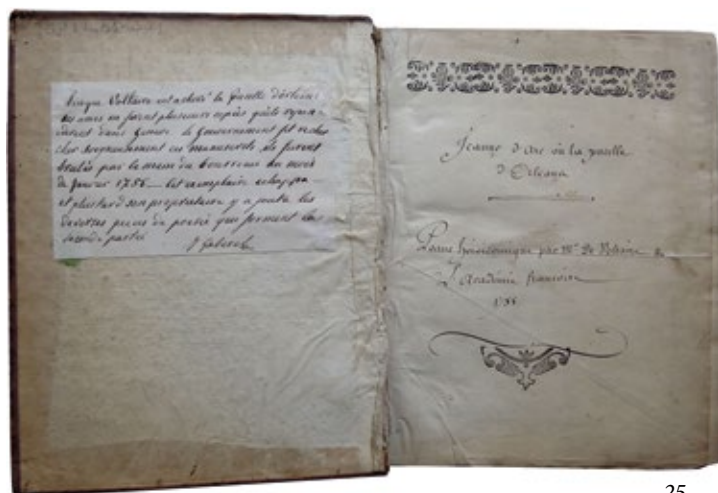 Lorsque Voltaire eut achevé la Pucelle d'Orléans
ses amis en firent plusieurs copies qu'ils répan-
dirent dans Genève. le Gouvernement fit recher-
cher soigneusement ces manuscrits, ils furent
brulés par la main du bourreau au mois
de Janvier 1756 _ cet exemplaire échappa
et plus tard son propriétaire y a joute les
diverses pieces de poésie qui forment la
seconde partie
J Gaberel
Jeanne d'Arc où la pucelle
d'Orleans
Poeme héroïcomique par Mr De Voltaire de
L'Académie francoise
25